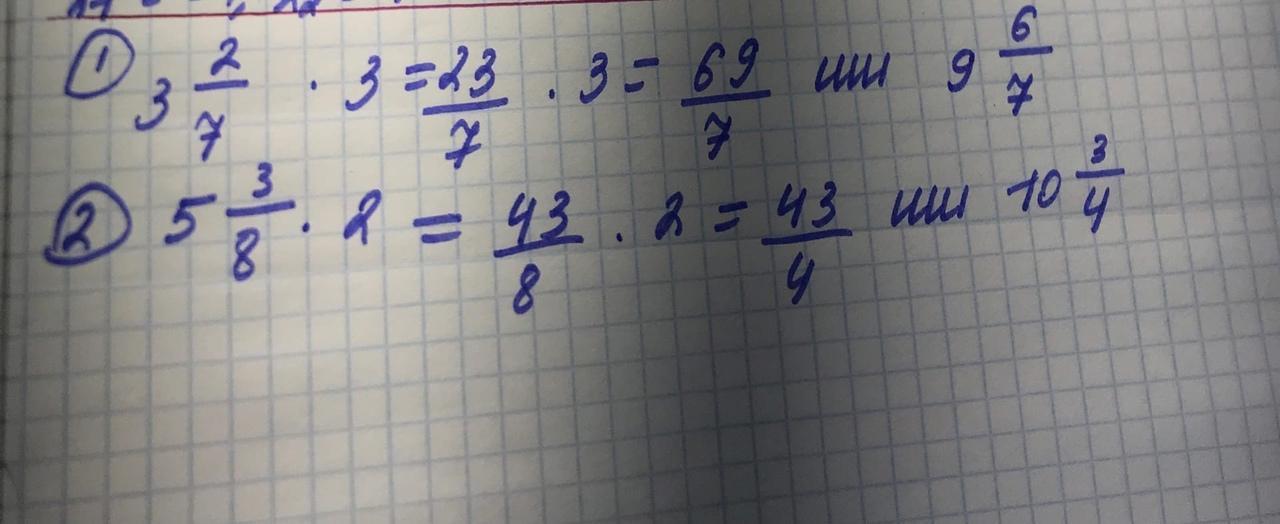 ① 3 2/7 · 3 = 23/7 · 3 = 69/7 или 9 6/7
② 5 3/8 · 2 = 43/8 · 2 = 43/4 или 10 3/4